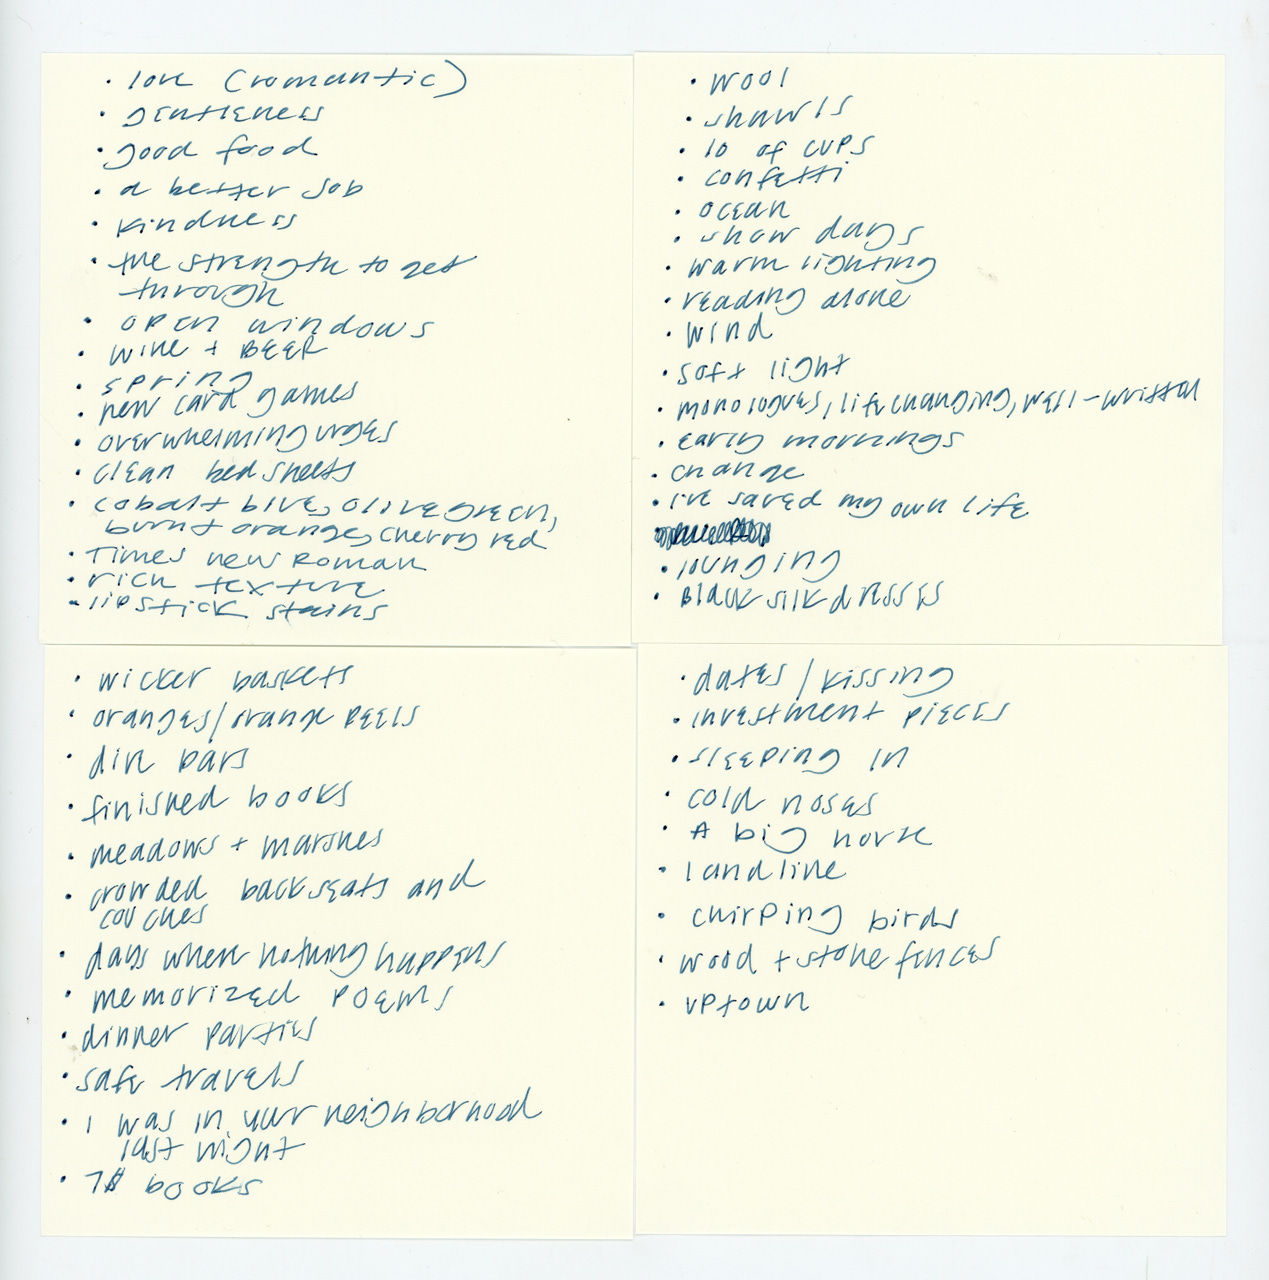 • love (romantic)
• gentleness
• good food
• a better job
• kindness
• the strength to get
through
• open windows
• wine + BEER
• spring
• new card games
• overwhelming urges
• clean bed sheets
• cobalt blue, olive green,
burnt orange, cherry red
• Times new Roman
• rich texture
• lipstick stains
• wool
• shawls
• 10 of cups
• confetti
• ocean
• snow days
• warm lighting
• reading alone
• wind
• soft light
• monologues, life changing, well-written
• early mornings
• change
• I've saved my own life
• lounging
• Black silk dresses
• wicker baskets
• oranges/orange peels
• dive bars
• finished books
• meadows + marshes
• crowded backseats and
couches
• days where nothing happens
• memorized poems
• dinner parties
• safe travels
• I was in your neighborhood
last night
• 7$ books
• dates / kissing
• investment pieces
• sleeping in
• cold noses
• A big house
• landline
• chirping birds
• wood + stone fences
• uptown